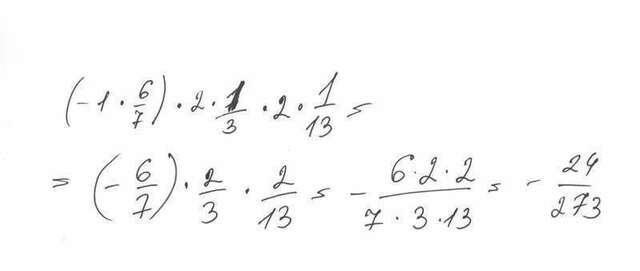 (-1 · 6/7) · 2 · 1/3 · 2 · 1/13 =
= (-6/7) · 2/3 · 2/13 = - 6·2·2/7·3·13 = - 24/273